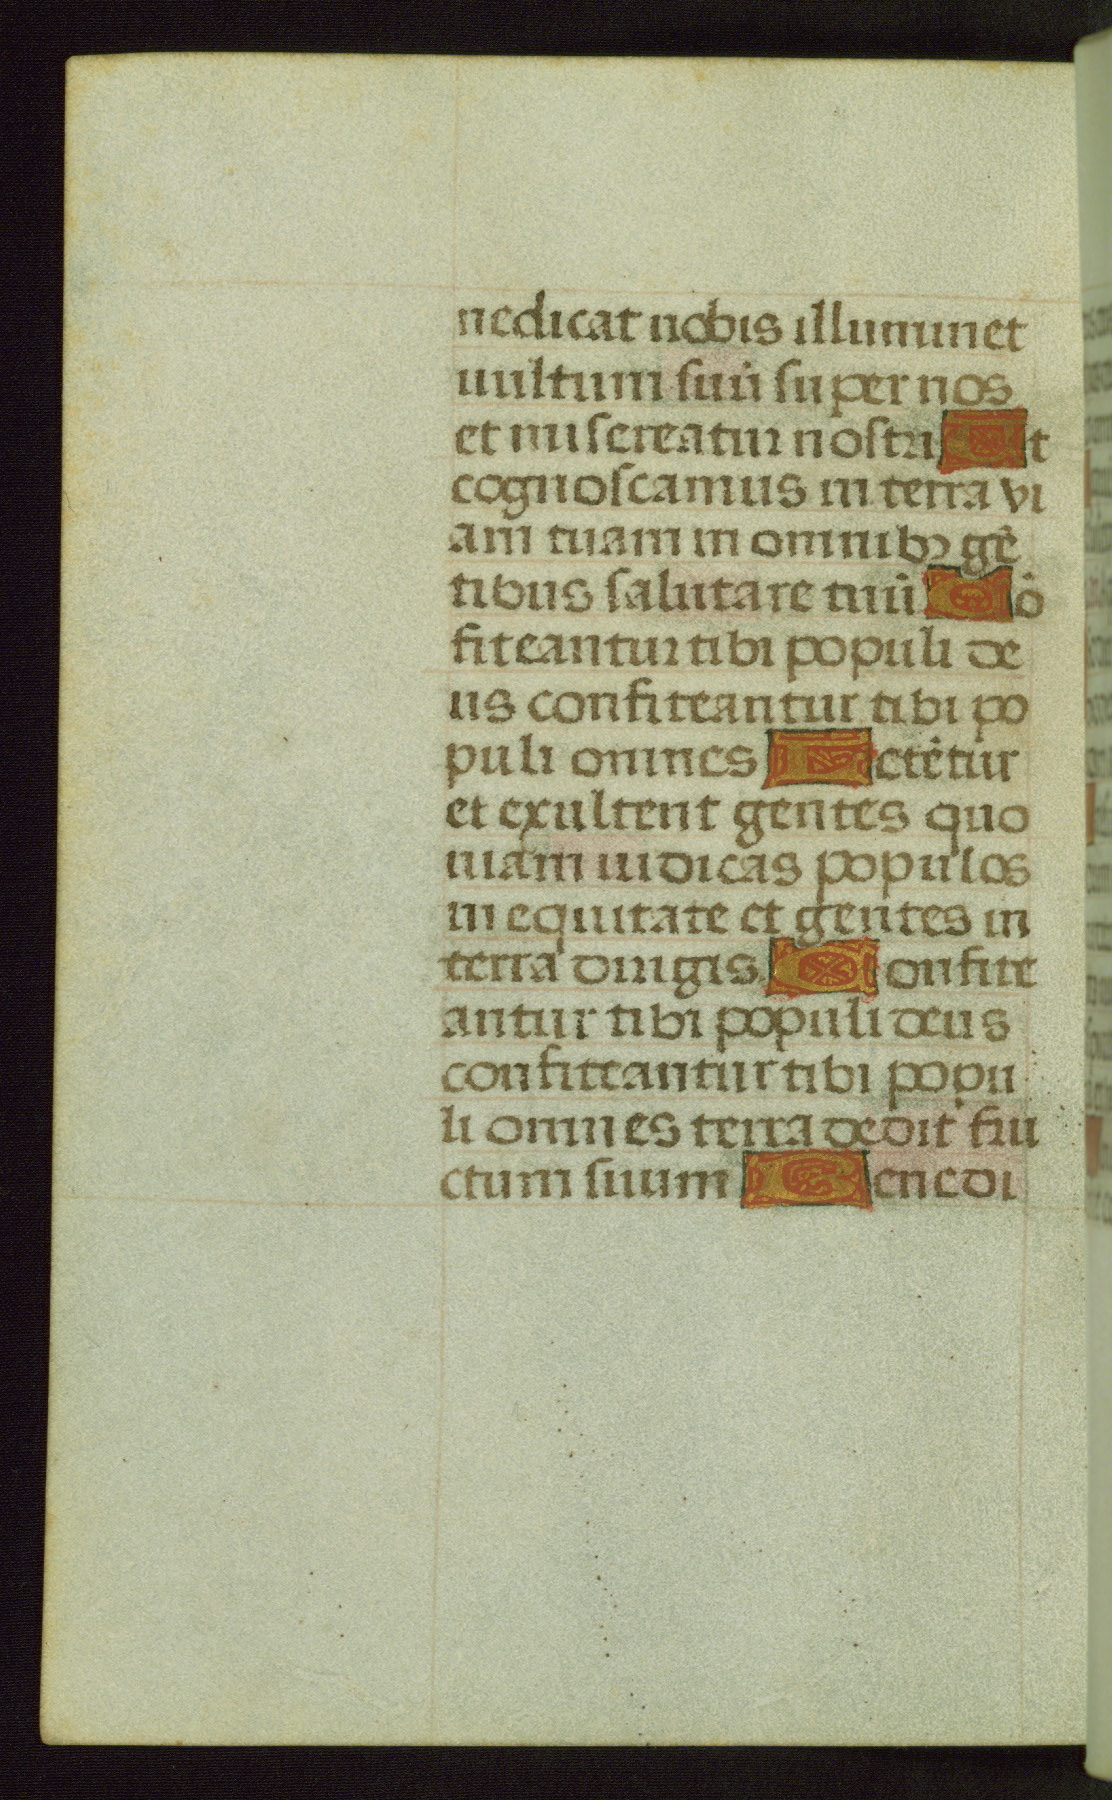 nedicat nobis illuminet
uultum suū super nos
et misereatur nostri Ut
cognoscamus in terra vi
am tuam in omnibꝫ gē
tibus salutare tuū Cō
fiteantur tibi populi de
us confiteantur tibi po
puli omnes Letētur
et exultent gentes quo
niam iudicas populos
in equitate et gentes in
terra dirigis Confite
antur tibi populi deus
confiteantur tibi popu
li omnes terra dedit fru
ctum suum Benedi